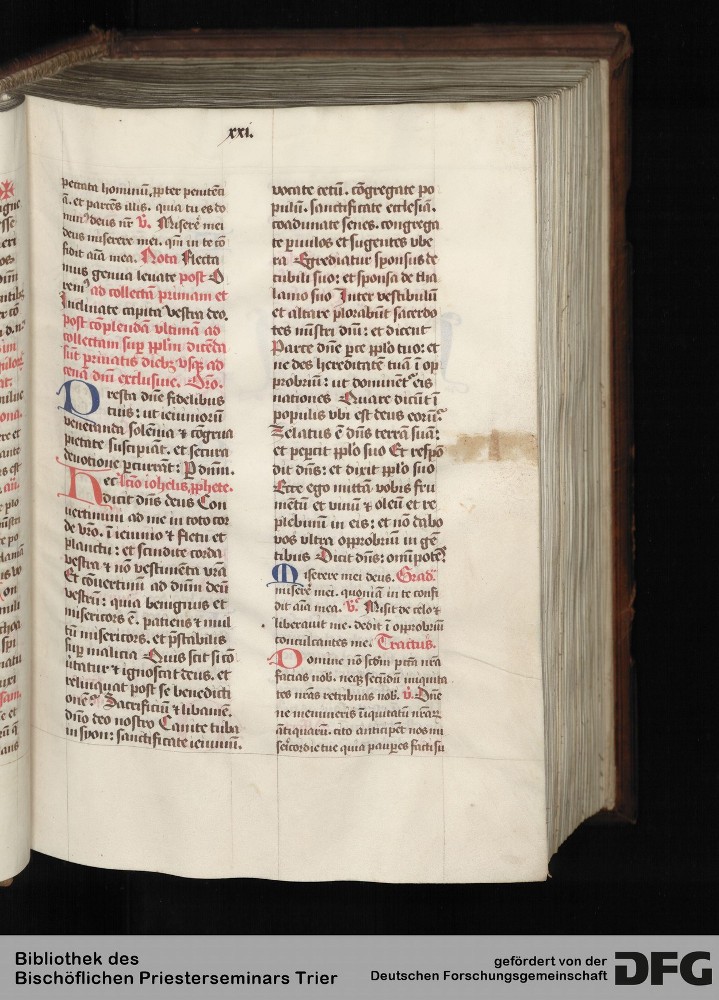 xxi.
peccata hominū, ꝓpter penitēti
ā. et parcēs illis. quia tu es do
minꝰ deus nr̄ v̄. Miserē mei
deus miserere mei. qm̄ in te cō
fidit aīa mea. Nota Flecta
mus genua leuate post O
remꝰ ad collectā primam et
Inclinate capita vestra deo.
post cōplendā vltimā ad
collectam suꝑ pplm̄ dicēda
sūt priuatis diebꝫ vsqꝫ ad
cenā dn̄i exclusiue. Oro.
Presta dn̄e fidelibus
tuis: ut ieiuniorū
veneranda solēnia ⁊ cōgrua
pietate suscipiāt. et secura
deuotione ꝑcurrāt: P dn̄m.
Hec lc̄io iohelis ꝓphete.
dicit dn̄s deus Con
uertimini ad me in toto cor
de vr̄o. ī ieiunio ⁊ fletu et
planctu: et scindite corda
vestra ⁊ nō vestimēta vr̄a
Et cōuertimī ad dn̄m deū
vestrū: quia benignus et
misericors ē. patiens ⁊ mul
tū misericors. et p̄stabilis
suꝑ malicia Quis scit si cō
utatur ⁊ ignoscat deus. et
relinquat post se benedicti
onē? Sacrificiū ⁊ libamē.
dn̄o deo nostro Canite tuba
in syon: sanctificate ieiuniū.
vocate cetū. cōgregate po
pulū. sanctificate ecclesiā.
coadunate senes. congrega
te ꝑuulos et sugentes vbe
ra Egrediatur sponsus de
cubili suo: et sponsa de tha
lamo suo Inter vestibulū
et altare plorabūt sacerdo
tes mīstri dn̄i: et dicent
Parce dn̄e ꝑce pplo tuo: et
ne des hereditatē tuā ī op
probriū: ut dominēt᷑ eis
nationes Quare dicūt ī
populis vbi est deus eorū?
Zelatus ē dn̄s terrā suā:
et peꝑcit pplo suo Et respō
dit dn̄s: et dixit pplo suo
Ecce ego mittā vobis fru
mētū et vinū ⁊ oleū et re
plebimī in eis: et nō dabo
vos vltra opprobriū in gē
tibus Dicit dn̄s: omīpotēs
Miserere mei deus. Grad.
miserē mei. quoniā in te confi
dit aīa mea. v̄. Misit de celo ⁊
liberauit me. dedit ī opprobriū
conculcantes me. Tractus.
Domine nō scd̄m pctā nr̄a
facias nob. neqꝫ secūdū iniquita
tes nr̄as retribuas nob. v̄. Dn̄e
ne memineris īiquitatū nr̄aꝝ
ātiquarū. cito anticipēt nos mi
sēicordie tue quia pauꝑes facti su
Bibliothek des
Bischöflichen Priesterseminars Trier
gefördert von der
Deutschen Forschungsgemeinschaft
DFG